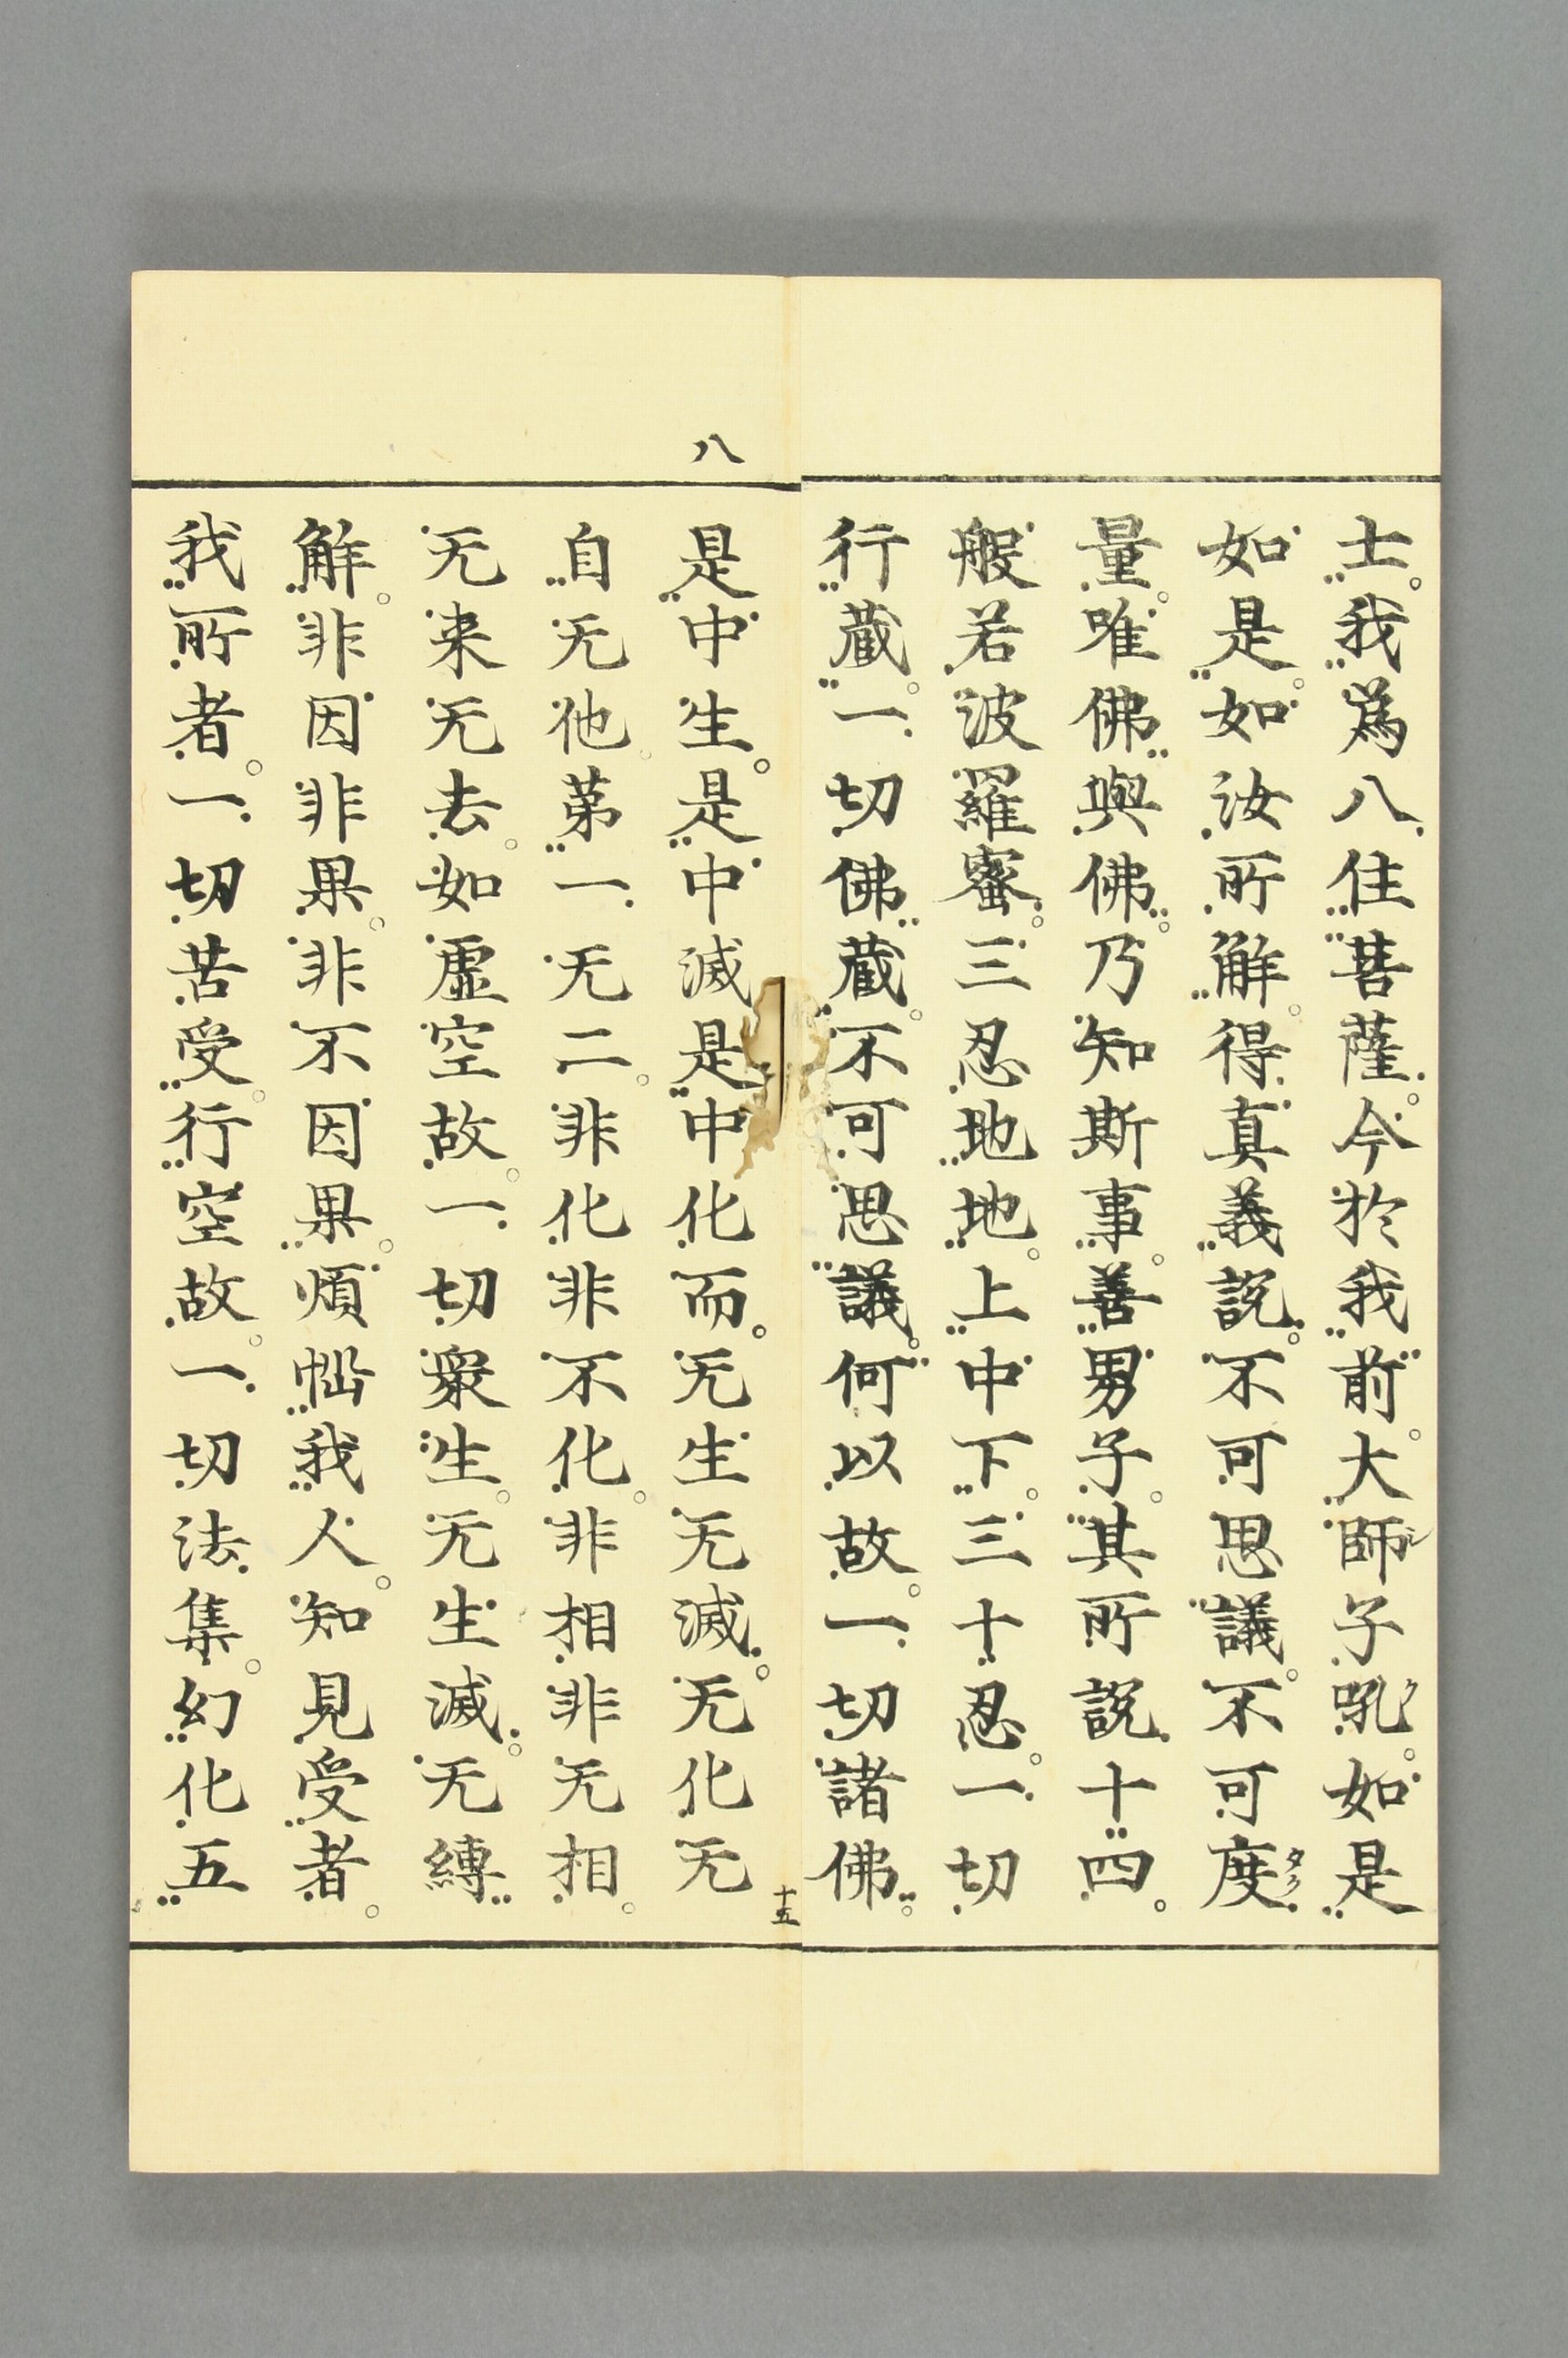 士我爲八住菩薩今於我前大師子吼如是
如是如汝所解得真義說不可思議不可度
量唯佛與佛乃知斯事善男子其所說十四
般若波羅蜜三忍地地上中下三十忍一切
行蔵一切佛蔵不可思議何以故一切諸佛
八
是中生是中滅是中化而无生无滅无化无
自无他第一无二非化非不化非相非无相
无来无去如虛空故一切衆生无生滅无縛
解非因非果非不因果煩惱我人知見受者
我所者一切苦受行空故一切法集幻化五
十五